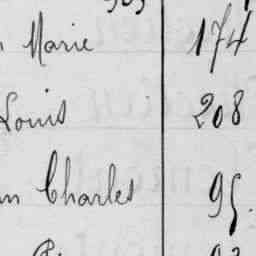 Marie 174
Louis 208
Charles 95.